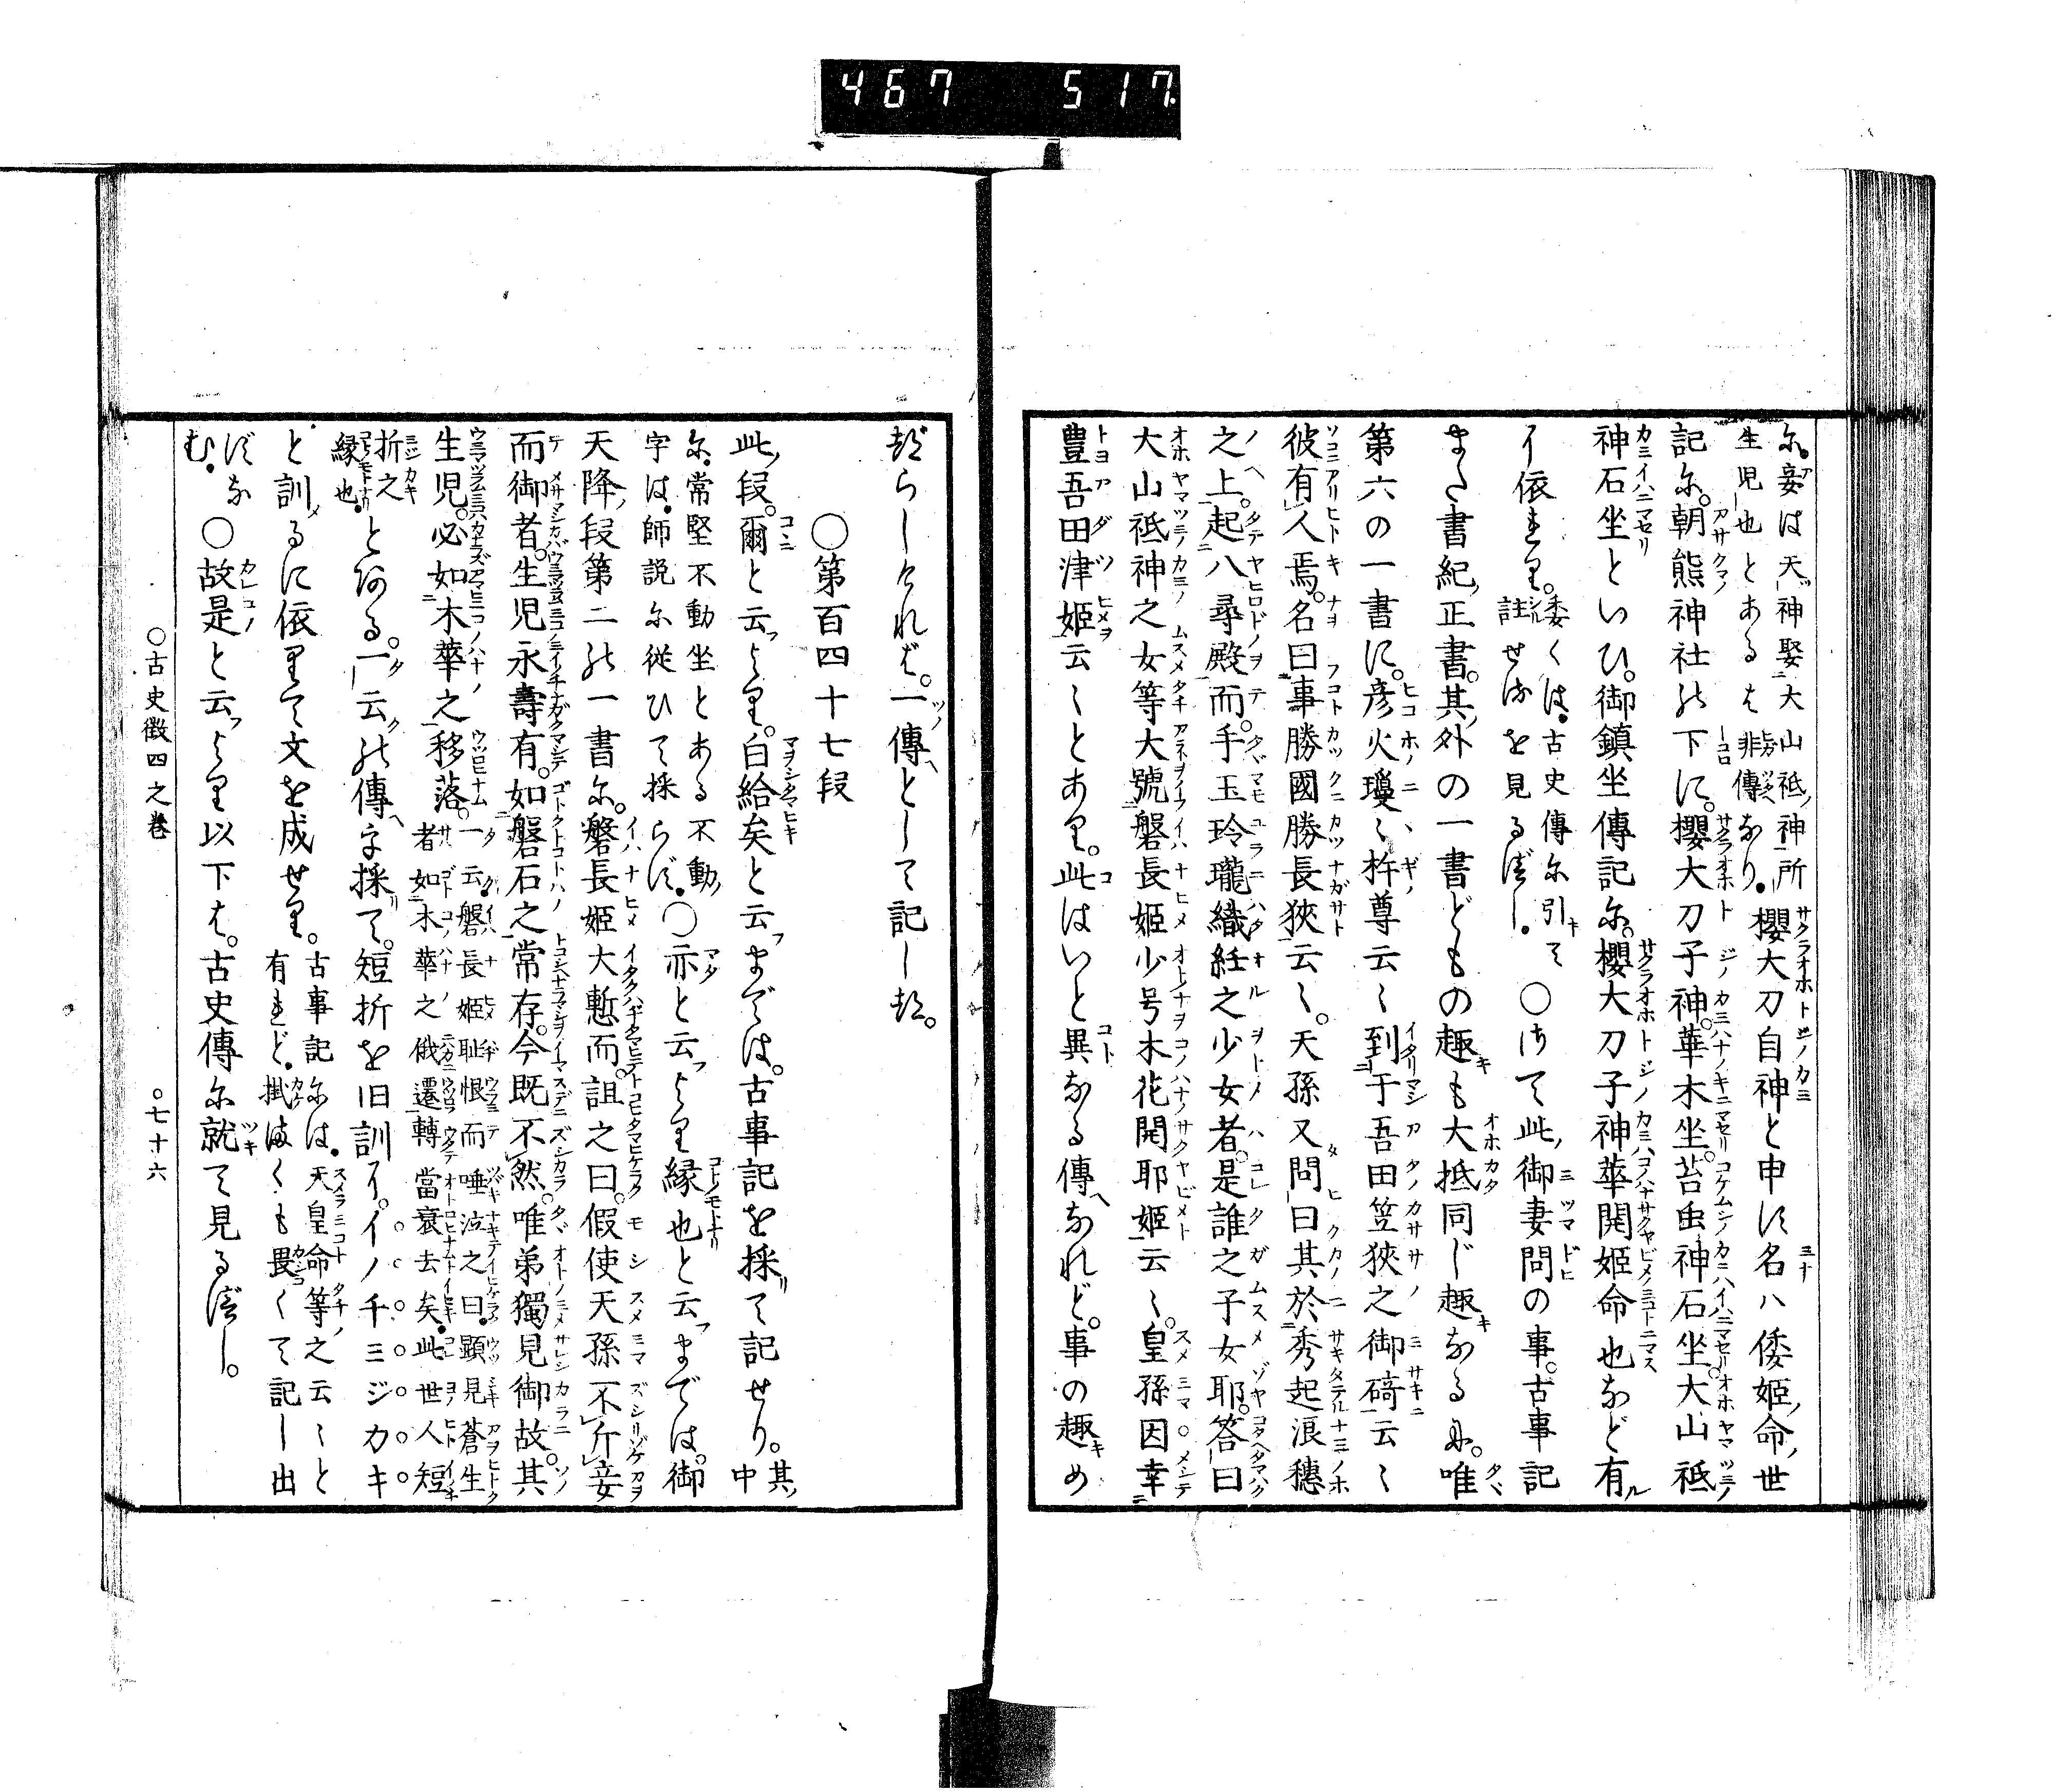 467 517
尓。妾は天神娶大山祇神所
生児也とあるは非傳なり。櫻大刀自神と申す名ハ倭姫命世
記尓。朝熊神社の下に。櫻大刀子神。華木坐。苔虫神石坐。大山祇
神石坐といひ。御鎮坐傳記尓。櫻大刀子神華開姫命也など有
に依れり。委くは。古史傳尓引て註せるを見るべし。〇さて此御妻問の事。古事記
また書紀正書。其外の一書どもの趣も大抵同じ趣なるに。唯
第六の一書に。彦火瓊〻杵尊云〻到于吾田笠狭之御碕云〻
彼有人焉。名曰事勝國勝長狭云〻。天孫又問曰其於秀起浪穗
之上。起八尋殿而。手玉玲瓏織絍之少女者。是誰之子女耶。答曰
大山祇神之女等大號磐長姫少号木花開耶姫云〻。皇孫因幸
豊吾田津姫云〻とあり。此はいと異なる傳なれど。事の趣め
づらしければ。一傳として記しつ。
〇第百四十七段
此段。爾と云より。白給矣と云までは。古事記を採て記せり。其中
尓。常堅不動坐とある不動
字は。師説尓従ひて採らず。〇亦と云より縁也と云までは。御
天降段第二の一書尓。磐長姫大慙而。詛之曰。假使天孫不斤妾
而御者。生児永壽有。如磐石之常存。今既不然。唯弟獨見御故。其
生児。必如木華之移落。一云磐長姫恥恨而唾泣之曰。顯見蒼生
者如木華之俄遷轉當衰去矣。此世人短
折之
縁也。とある。一云の傳を採て。短折を旧訓に。イノチミジカキ
と訓るに依りて文を成せり。古事記尓は。天皇命等之云〻と
有れど。掛まくも畏くて記し出
ずなむ。〇故是と云より以下は。古史傳尓就て見るべし。
〇古史徴四之巻
〇七十六